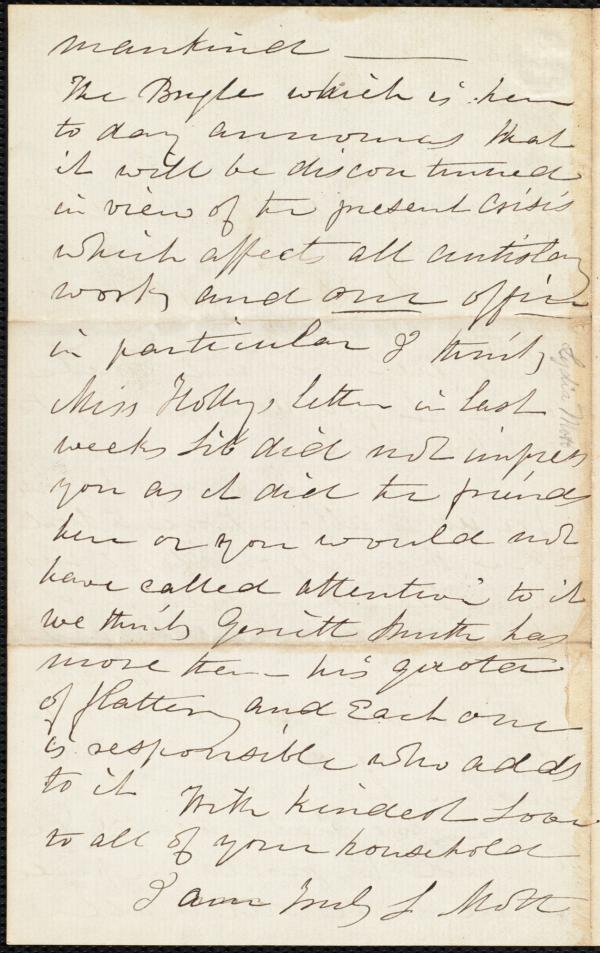 mankind ——
The Bugle which is here
to day announces that
it will be discontinued
in view of the present crisis
which affects all antislavy
work, and our office
in particular I think
Miss Holley,s letter in last
weeks Lib did not impress
you as it did the friends
here or you would not
have called attention to it
we think Gerritt Smith has
more then his quota
of flattery and Each one
is responsible who adds
to it With kindest Love
to all of your household
I am truly L Mott
Lydia Mott